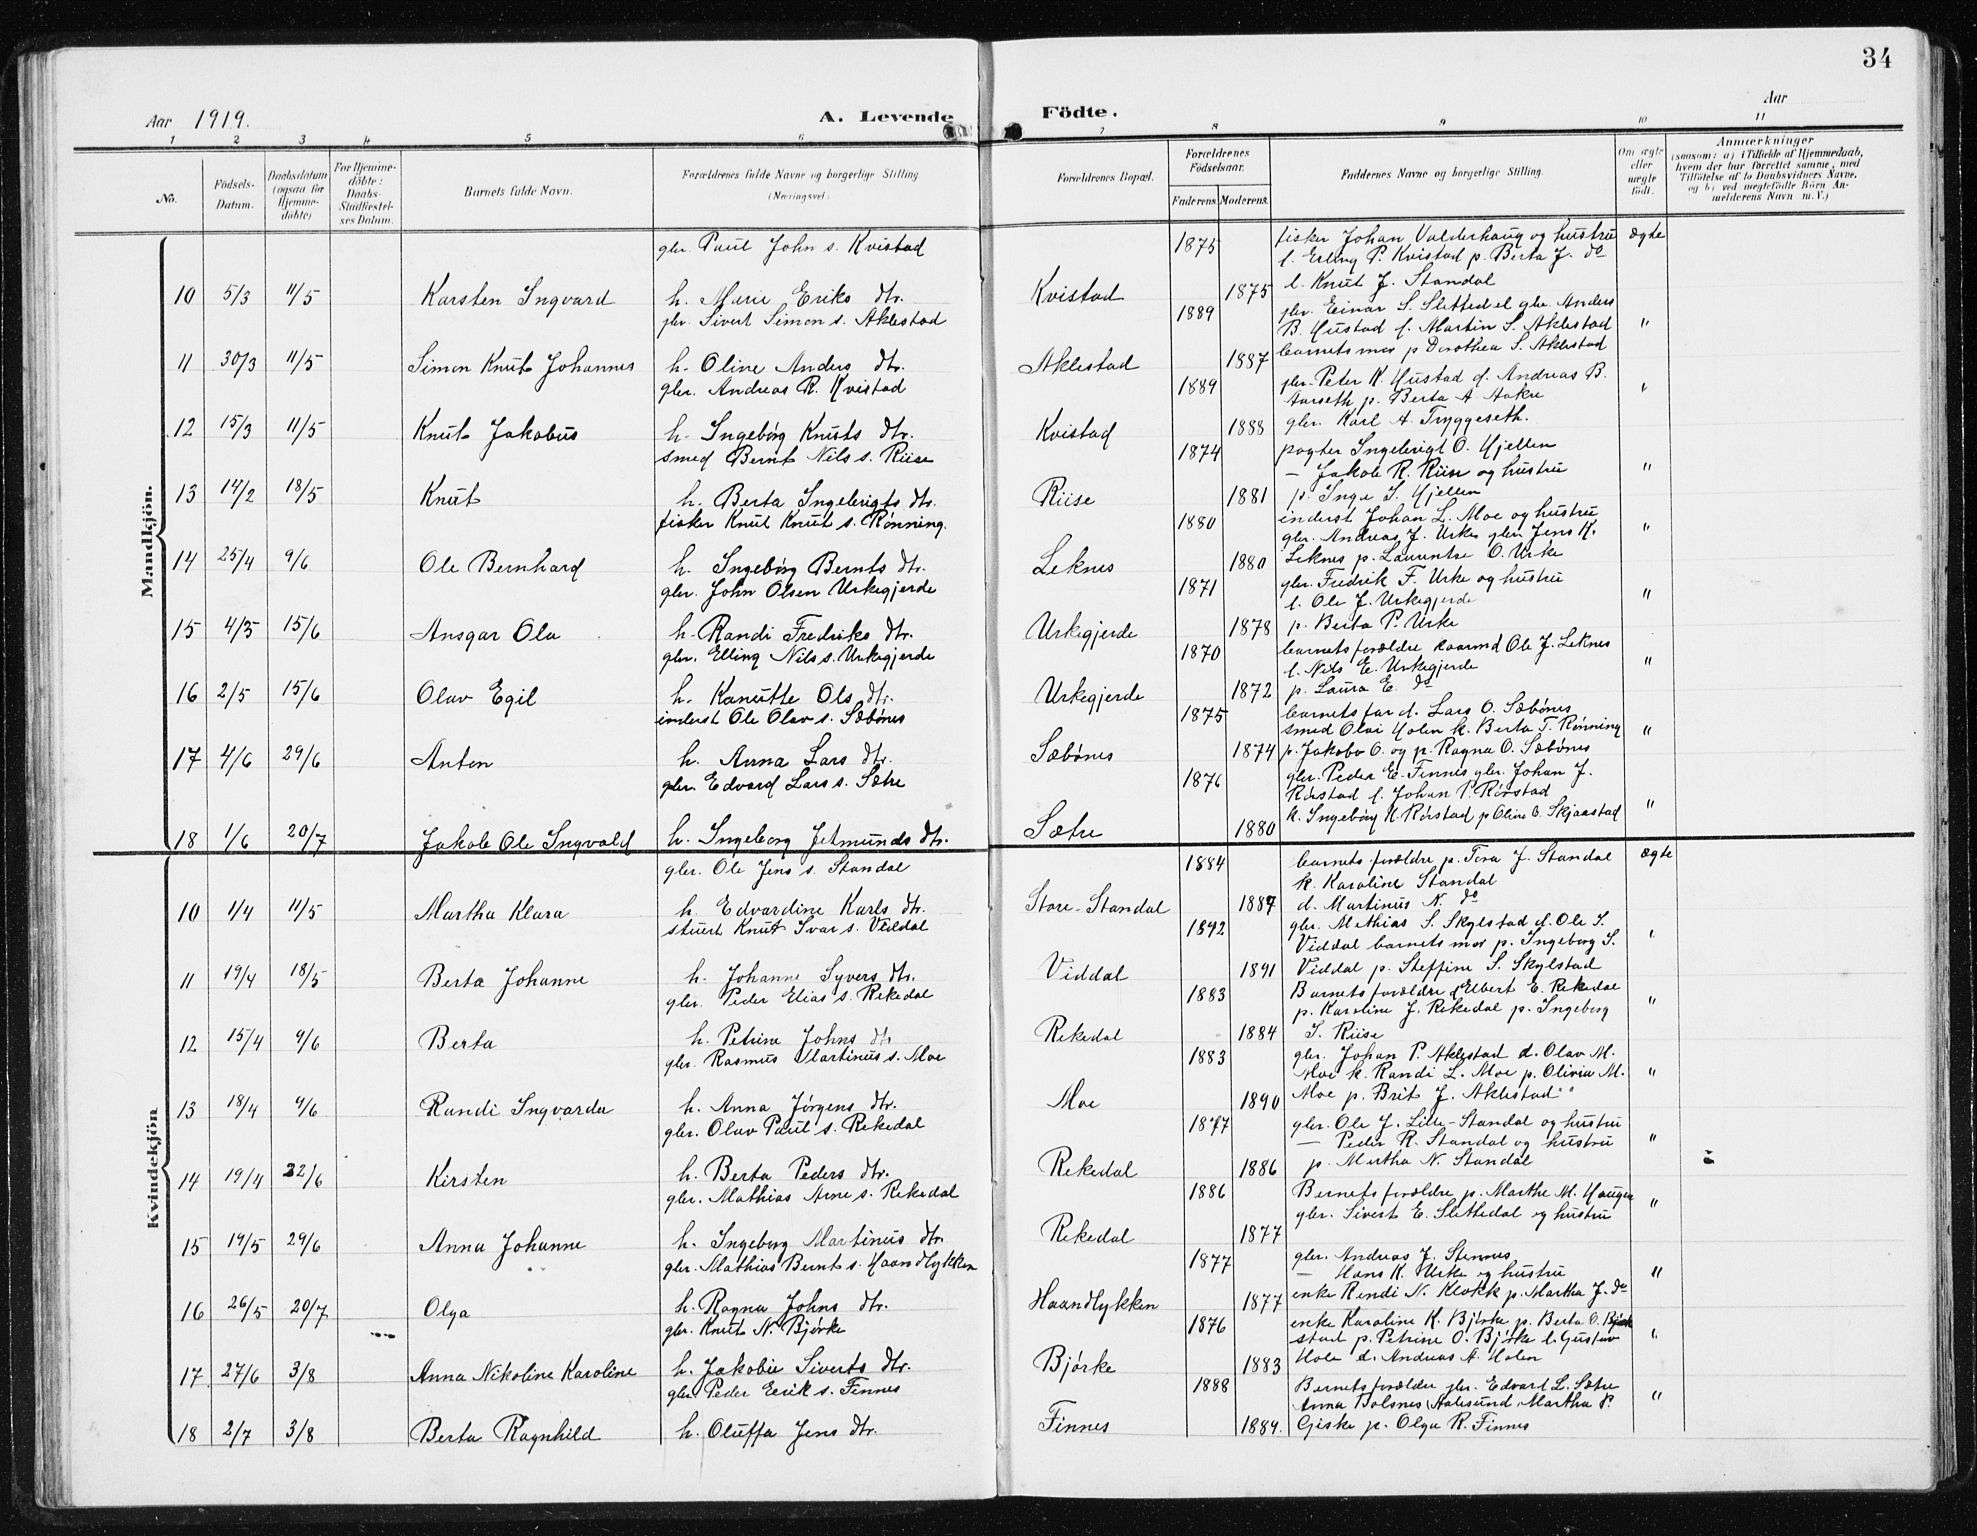 34
Aar 1919.
A. Levende Födte.
Aar
1 2 3 4 5 6 7 8 9 10 11
No.
Födsels-Datum.
Daabsdatum (ogsaa for Hjemme-döbte)
For Hjemme-döbte: Daabs-Stadfæstel-ses Datum.
Barnets fulde Navn.
Forældrenes fulde Navne og borgerlige Stilling (Næringsvei).
Forældrenes Bopæl.
Forældrenes Födselsaar.
Faderens. Moderens.
Faddernes Navne og borgerlige Stilling.
Om ægte eller uægte födt.
Anmærkninger
(saasom: a) i Tilfælde af Hjemmedaab, hvem der har forrettet samme, med Tilföielse af to Daabsvidners Navne, og b) ved uægtefödte Börn An-melderens Navn m. V.)
Mandkjön.
gbr. Paul John s. Kvistad 1875 fisker Johan Valderhaug og hustru ægte
l. Erling P. Kvistad p. Berta J. do
10 5/3 11/5 Karsten Ingvard h. Marie Eriks dtr. Kvistad 1875 l. Knut J. Standal
gbr. Sivert Simon s. Aklestad 1889 gbr. Einar S. Slettedal gbr. Anders
B. Hustad f. Martin S. Aklestad "
11 30/3 11/5 Simon Knut Johannes h. Oline Anders dtr. Aklestad 1887 barnets mor p Dorothea S. Aklestad
gbr. Andreas R. Kvistad 1889 gbr. Peter K. Hustad d. Andreas B.
Aarseth p. Berta A. Aakre "
12 15/3 11/5 Knut Jakobus h. Ingebørg Knuts dtr. Kvistad 1888 gbr. Karl A. Tryggeseth.
smed Bernt Nils s. Riise 1874 pagter Ingebrigt O. Hjellen
— Jakob R. Riise og hustru "
13 14/2 18/5 Knut h. Berta Ingebrigts dtr. Riise 1881 p. Inga I. Hjellen
fisker Knut Knut s. Rønning. 1880 inderst Johan L. Moe og hustru
gbr. Andreas J. Urke gbr. Jens K. "
14 25/4 9/6 Ole Bernhard h. Ingebørg Bernts dtr. Leknes 1880 Leknes p. Laurentse O. Urke
gbr. John Olsen Urkegjerde 1871 gbr. Fredrik F. Urke og hustru
l. Ole J. Urkegjerde "
15 4/5 15/6 Ansgar Ola h. Randi Fredriks dtr. Urkegjerde 1878 p. Berta P. Urke
gbr. Elling Nils s. Urkegjerde 1870 barnets forældre kaarmd Ole J. Leknes
l. Nils E. Urkegjerde "
16 2/5 15/6 Olav Egil h. Kanutte Ols dtr. Urkegjerde 1872 p. Laura E. do
inderst Ole Olav s. Sæbønes 1875 barnets far d. Lars O. Sæbønes
smed Olai Holen k. Berta T. Rønning "
17 4/6 29/6 Anton h. Anna Lars dtr. Sæbønes 1874 p. Jakobo O. og p. Ragna O. Sæbønes
gbr. Edvard Lars s. Sætre 1876 gbr. Peder E. Finnes gbr. Johan J.
Rørstad f. Johan P. Rørstad "
18 1/6 20/7 Jakob Ole Ingvald h. Ingeborg Jetmunds dtr. Sætre 1880 k. Ingebørg K. Rørstad p Oline O. Skjaastad
Kvindekjön
gbr. Ole Jens s. Standal 1884 barnets forældre p. Tora J. Standal ægte
k. Karoline Standal
10 1/4 11/5 Martha Klara h. Edvardine Karls dtr. Store-Standal 1887 d. Martinus N. do
stuert Knut Ivar s. Viddal 1892 gbr. Mathias S. Skylstad d. Ole S.
Viddal barnets mor p. Ingeborg S. "
11 19/4 18/5 Berta Johanne h. Johanne Syvers dtr. Viddal 1891 Viddal p. Steffine S. Skylstad
gbr. Peder Elias s. Rekedal 1883 Barnets forældre d Elbert E. Rekedal
p. Karoline J. Rekedal p. Ingeborg "
12 15/4 9/6 Berta h. Petrine Johns dtr Rekedal 1884 S. Riise
gbr. Rasmus Martinus s. Moe 1883 gbr. Johan P. Aklestad d. Olav M.
Moe k. Randi L. Moe p. Olivia M. "
13 18/4 9/6 Randi Ingvarda h. Anna Jørgens dtr. Moe 1890 Moe p. Brit J. Aklestad
gbr. Olav Paul s. Rekedal 1877 gbr. Ole J. Lille-Standal og hustru
— Peder R. Standal og hustru "
14 19/4 22/6 Kirsten h. Berta Peders dtr. Rekedal 1886 p. Martha N. Standal
gbr. Mathias Arne s. Rekedal 1886 Barnets forældre p. Marthe M. Haugen
gbr. Sivert E. Slettedal og hustru "
15 19/5 29/6 Anna Johanne h. Ingeborg Martinus dtr Rekedal 1877
gbr. Mathias Bernt s. Haandlykken 1877 gbr. Andreas J. Stennes
— Hans K. Urke og hustru "
16 26/5 20/7 Olga h. Ragna Johns dtr. Haandlykken 1877 enke Rendi N. Klokk p. Martha J. do
gbr. Knut N. Bjørke 1876 enke Karoline K. Bjørke p. Berta O. Bjørk
stad p. Petrine O. Bjørke l. Gustav "
17 27/6 3/8 Anna Nikoline Karoline h. Jakobie Siverts dtr. Bjørke 1883 Hole d. Andreas A. Holen
gbr Peder Eerik s. Finnes 1888 Barnets forældre gbr. Edvart L. Sætre
Anna Bolsnes (Aalesund, Martha P. "
18 2/7 3/8 Berta Ragnhild h. Oluffa Jens dtr. Finnes 1889. Giske p. Olga R. Finnes